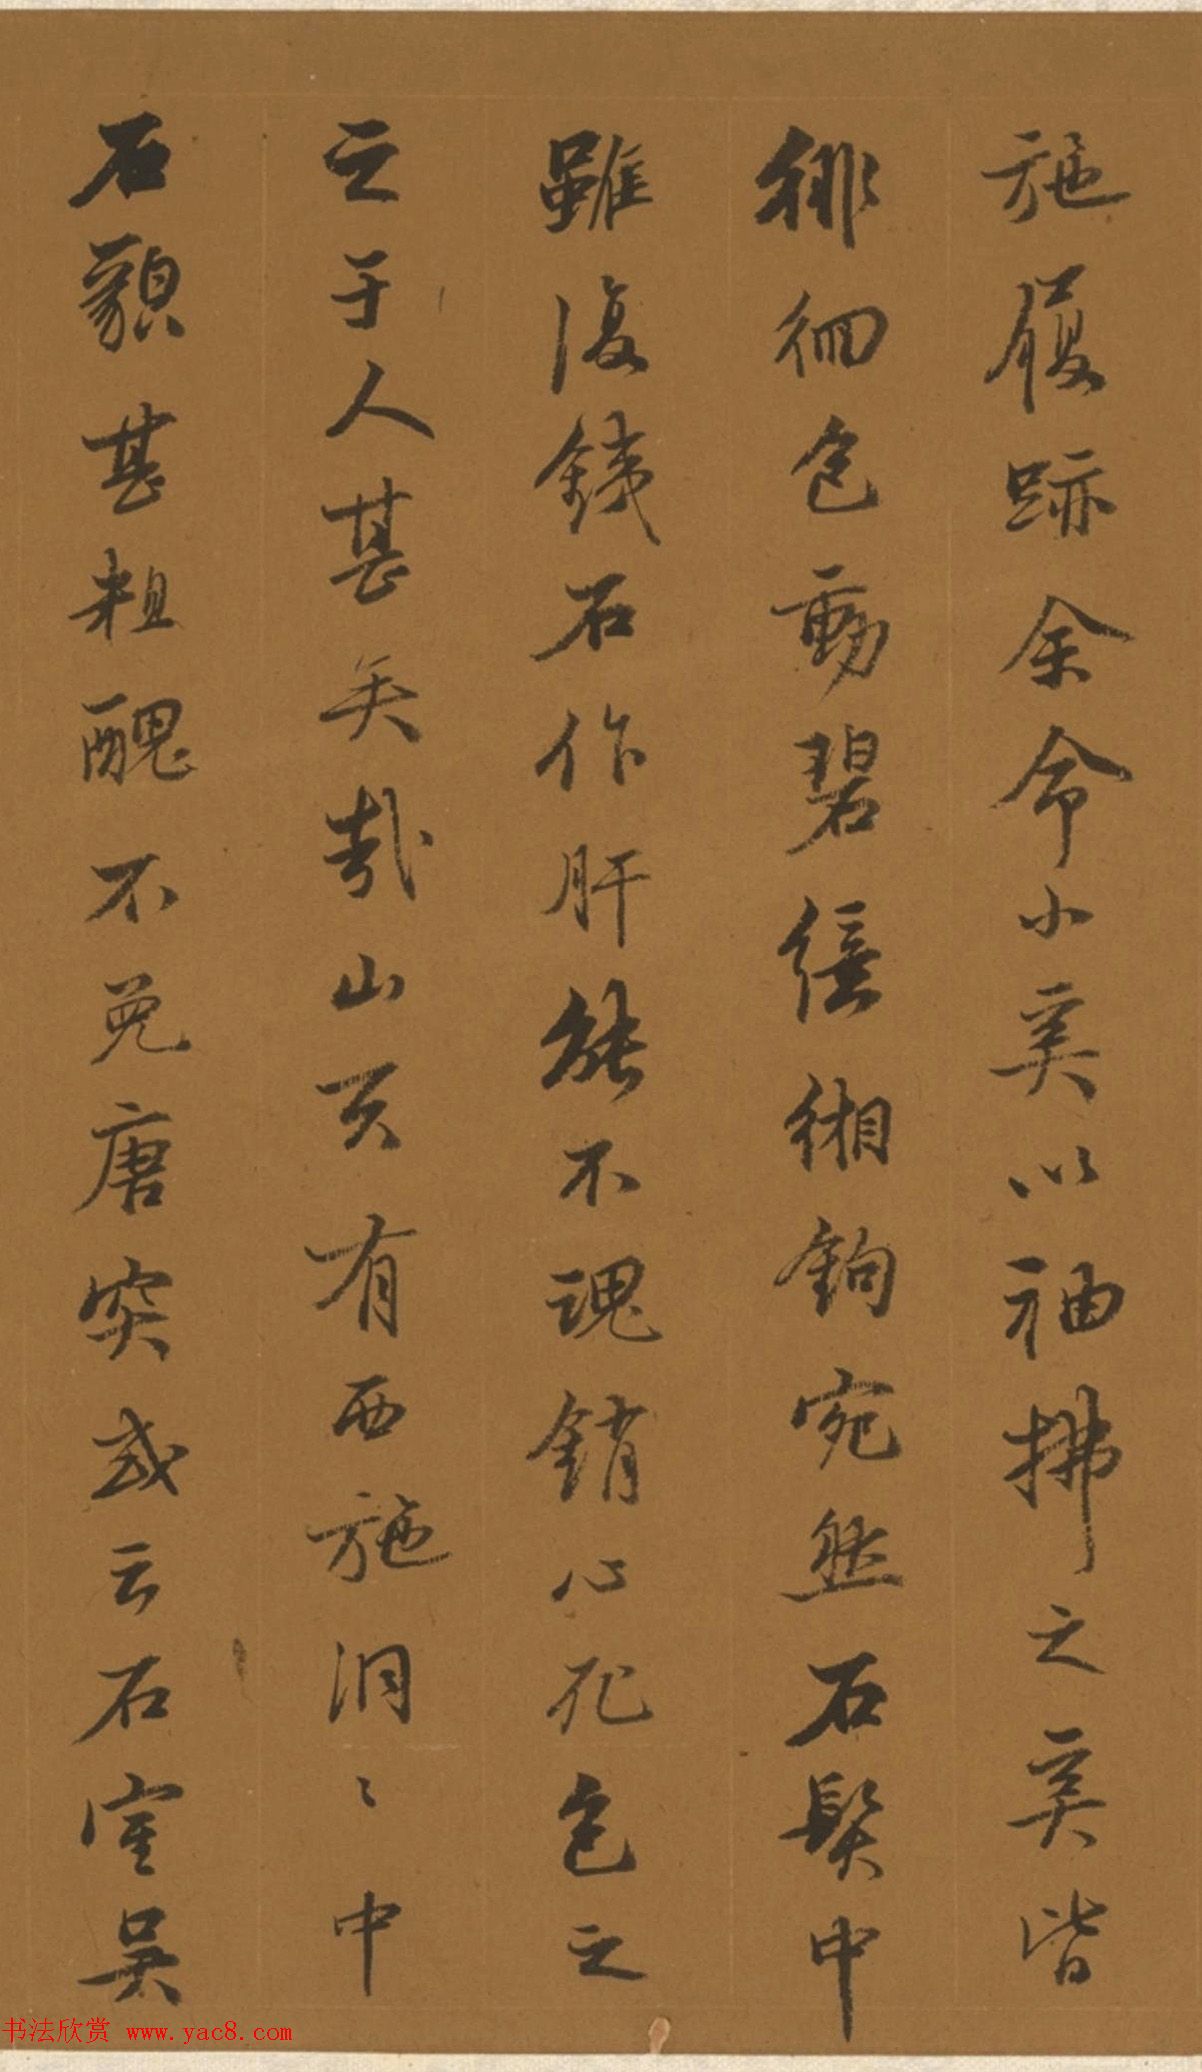 施履跡余命小奚以袖拂之奚皆
徘徊色動碧繶緗鉤宛然石髮中
雖復鐵石作肝能不魂銷心死色之
之于人甚矣哉山頁有西施洞〻中
石貌甚粗醜不免唐突或云石室吳
书法欣赏 www.yac8.com